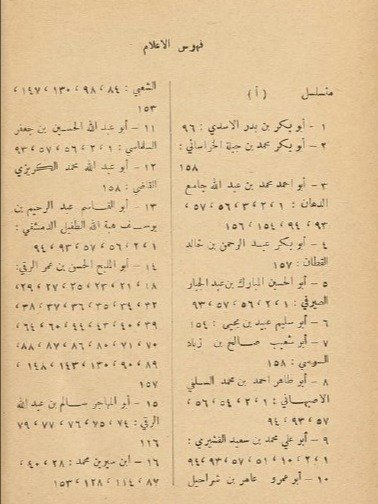 فهرس الاعلام
متسلسل ( أ )
١ - أبو بكر بن بدر الاسدي : ٩٦
٢ - أبو بكر محمد بن جبلة الخراساني :
١٥٨
٣ - أبو احمد محمد بن عبد الله جامع
الدهان : ١ ، ٢ ، ٣ ، ٥٦ ، ٥٧ ،
٩٣ ، ٩٤ ، ١٥٤ ، ١٥٦
٤ - أبو بكر عبد الرحمن بن خالد
القطان : ١٥٧
٥ - أبو الحسين المبارك بن عبد الجبار
الصيرفي : ١ ، ٢ ، ٥٦ ، ٥٧ ، ٩٣
٦ - أبو سليم عبيد بن يحيى : ١٥٤
٧ - أبو شعيب صالح بن زياد
السوسي : ١٥٨
٨ - أبو طاهر احمد بن محمد السلفي
الاصبهاني : ١ ، ٢ ، ٥٤ ، ٥٦ ،
٥٧ ، ٩٣ ، ٩٤
٩ - أبو علي محمد بن سعيد القشيري :
١ ، ٢ ، ١٠ ، ٥١ ، ٥٧ ، ٩٣ ، ٩٤
١٠ - أبو عمرو عامر بن شراحيل
الشعبي : ٨٤ ، ٩٨ ، ١٣٠ ، ١٤٧ ،
١٥٣
١١ - أبو عبد الله الحسين بن جعفر
السلماسي : ١ ، ٢ ، ٥٦ ، ٥٧ ، ٩٣
١٢ - أبو عبد الله محمد الكريزي
القاضي : ١٥٨
١٣ - أبو القاسم عبد الرحيم بن
يوسف هبة الله الطفيل الدمشقي :
١ ، ٢ ، ٥٦ ، ٥٧ ، ٩٣ ، ٩٤
١٤ - أبو المليح الحسن بن عمر الرقي :
١٨ ، ٢١ ، ٢٣ ، ٢٥ ، ٢٧ ، ٢٩ ،
٣٢ ، ٣٤ ، ٣٥ ، ٣٦ ، ٣٧ ، ٣٨ ،
٣٩ ، ٤٠ ، ٤٣ ، ٤٤ ، ٦٠ ، ٦٤ ،
٧٠ ، ٧١ ، ٨٠ ، ٨٦ ، ٨٧ ، ٨٨ ،
٨٩ ، ٩٠ ، ١٣٠ ، ١٤٣ ، ١٤٨ ،
١٥٧
١٥ - أبو المهاجر سالم بن عبد الله
الرقي : ٧٤ ، ٧٥ ، ٧٦ ، ٧٧ ، ٧٩
١١٦
١٦ - ابن سيرين محمد : ٢٨ ، ٤٠ ،
٨٧ ، ١١٤ ، ١٢٨ ، ١٥٣